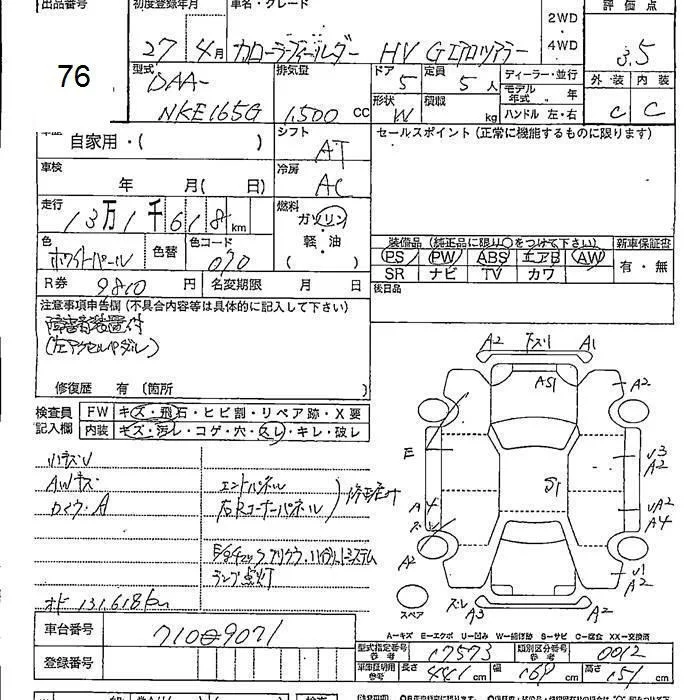 出品番号 初度登録年月 車名・グレード 評価点
76 27年4月 カローラフィールダー HV Gエアロツアラー 2WD・4WD 3.5
型式 排気量 ドア 定員 ディーラー・並行 外装 内装
DAA-NKE165G 1,500cc 5 5人 モデル年式 年 C C
形状 W 積載 kg ハンドル 左・右
車歴 自家用・( ) シフト AT セールスポイント(正常に機能するものに限ります)
車検 年 月( 日) 冷房 AC
走行 13万1千618km 燃料 ガソリン・軽・油( )
色 ホワイトパール 色替 色コード 070 装備品(純正品に限り○をつけて下さい) 新車保証書
PS PW ABS エアB AW 有・無
SR ナビ TV カワ
R券 9810円 名変期限 月 日 後日品
注意事項申告欄(不具合内容等は具体的に記入して下さい)
障害者装置付
(左アクセルペダル)
修復歴 有(箇所 )
検査員記入欄 FW キズ・飛石・ヒビ割・リペア跡・X要
内装 キズ・汚レ・コゲ・穴・スレ・キレ・破レ
ハネズU
AWキズ エンドパネル
右Rコーナーパネル
E/Gチェック、ブリクラ、ハイブリットシステム
ランプ点灯
オド 131,618km
A2 下ズレ1 A1
AS1 A2
E S1 U3 A2
A4 UA2 A4
ズレ
A2 U1 A2
スペア ズレ A3 A2
A-キズ E-エクボ U-凹み W-補修跡 S-サビ C-腐食 XX-交換済
車台番号 7109071 型式指定番号 参考 17573 類別区分番号 参考 0012
登録番号 車庫証明用 参考 長さ 441cm 幅 169cm 高さ 151cm